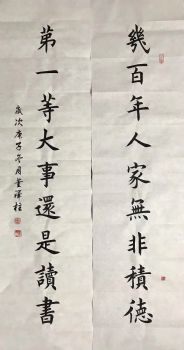 幾百年人家無非積德
第一等大事還是讀書
歲次庚子冬月董澤柱